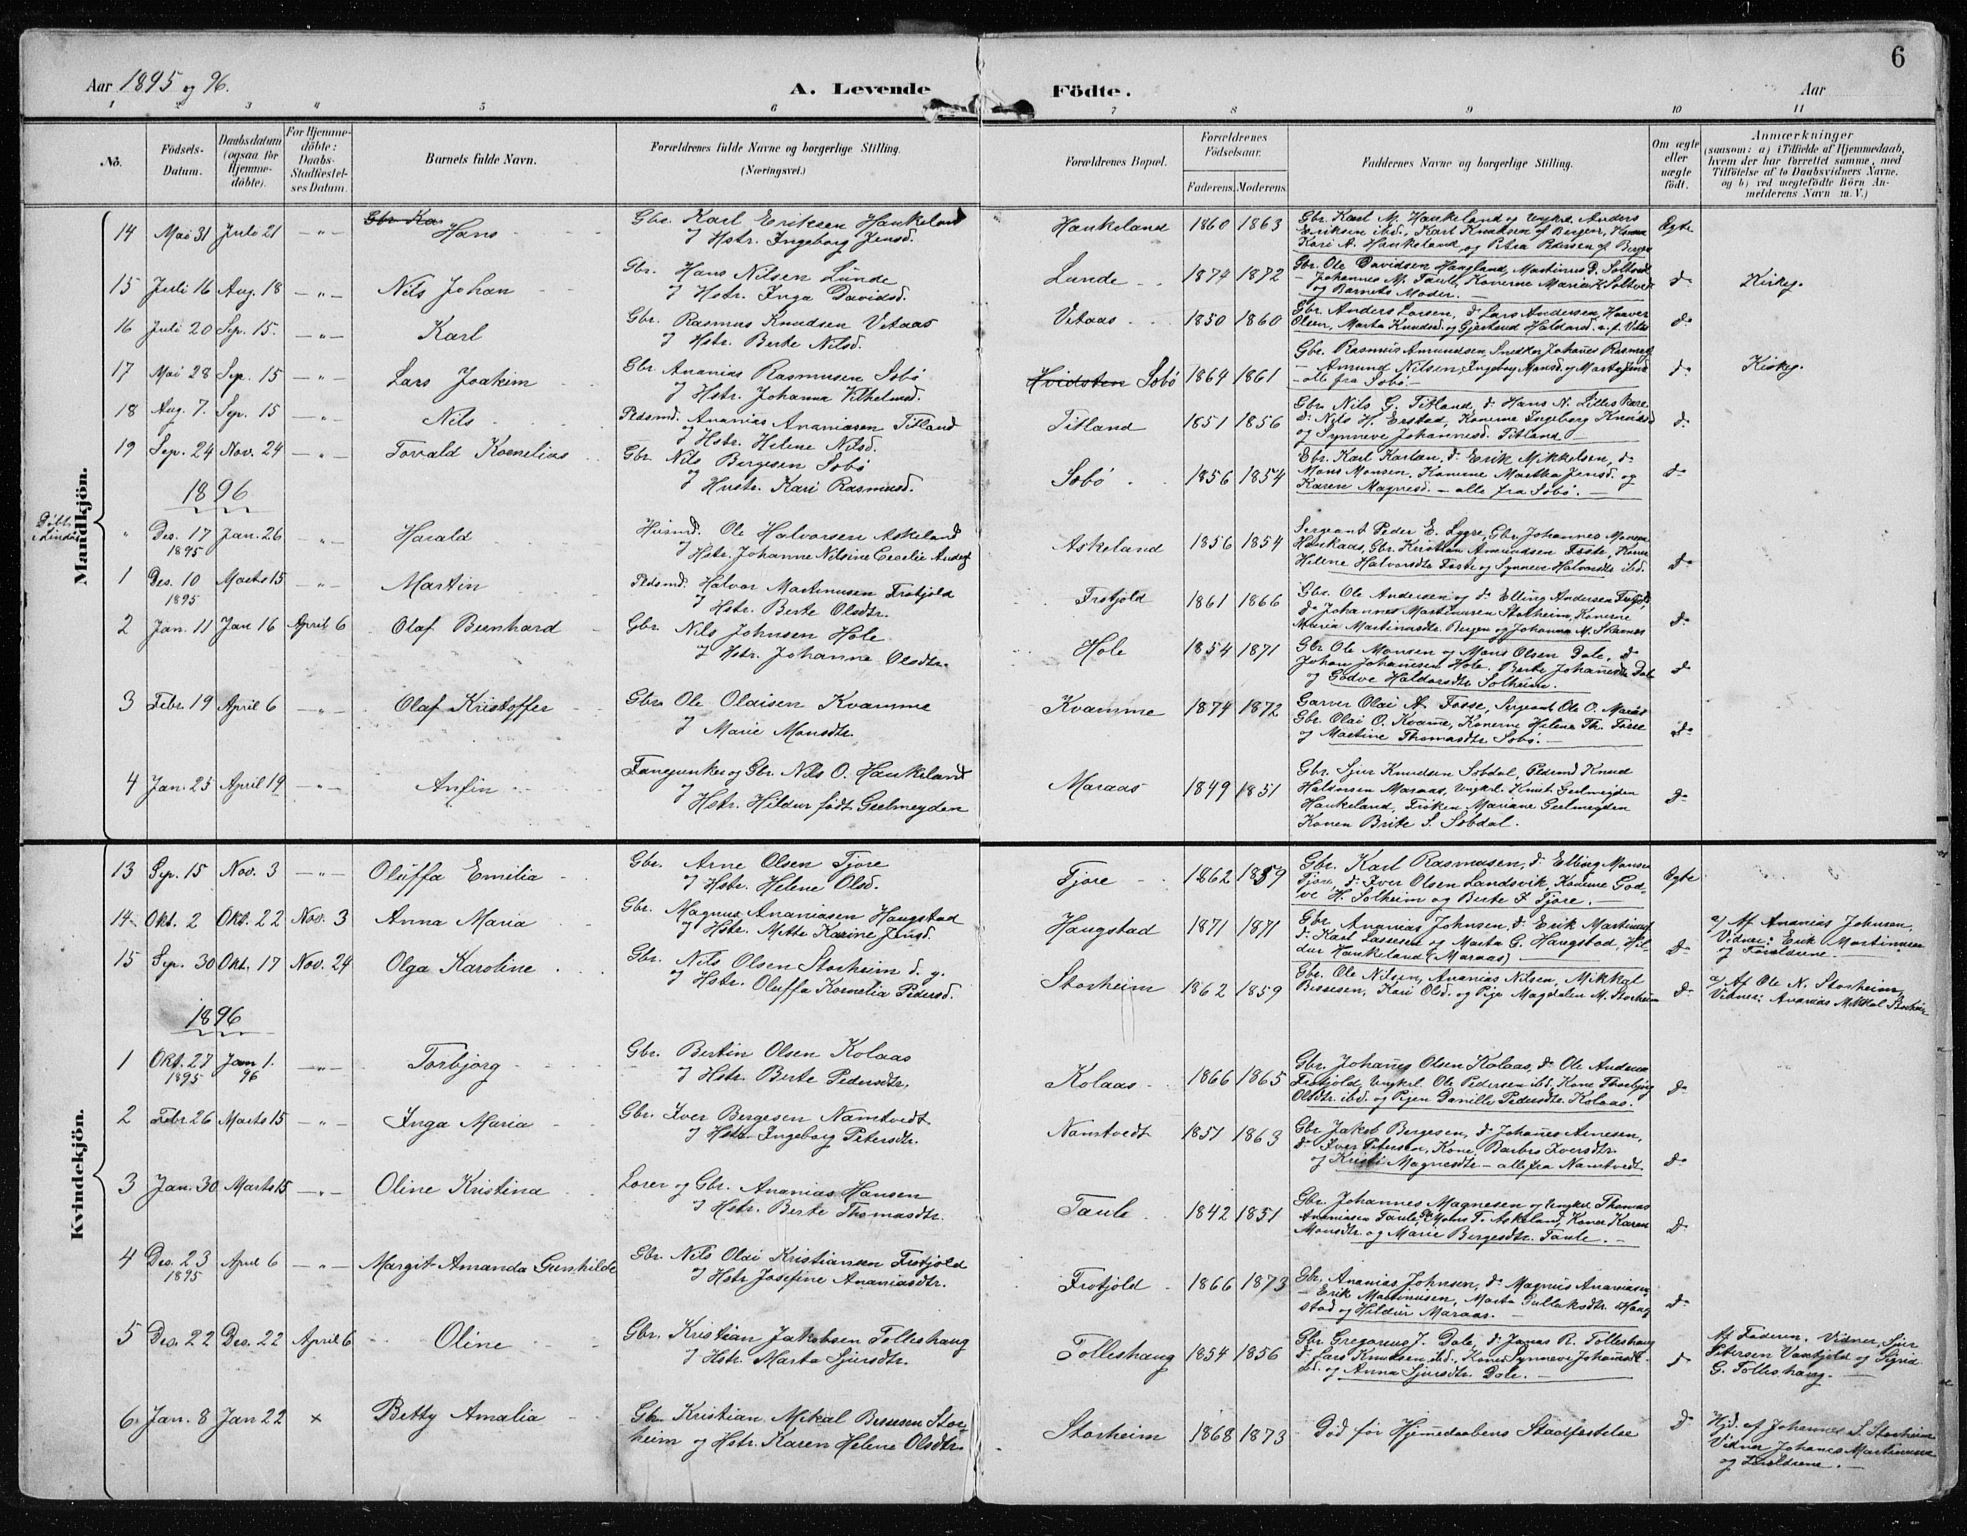 Aar 1895 og 96.
A. Levende Födte.
Aar
6
1 2 3 4 5 6 7 8 9 10 11
No.
Födsels-Datum.
Daabsdatum (ogsaa for Hjemmedöbte).
For Hjemmedöbte: Daabs-Stadfæstelses Datum.
Barnets fulde Navn.
Forældrenes fulde Navne og borgerlige Stilling.
(Næringsvei.)
Forældrenes Bopæl.
Forældrenes Födselsaar.
Faderens. Moderens.
Faddernes Navne og borgerlige Stilling.
Om ægte eller uægte födt.
Anmærkninger
(saasom: a) i Tilfælde af Hjemmedaab, hvem der har forrettet samme, med Tilföielse af to Daabsvidners Navne, og b) ved uegtefödte Börn Anmelderens Navn m. V.)
Mandkjön.
14 Mai 31 Juli 21 -"- Hans
Gbr. Karl Eriksen Haukeland
og Hstr. Ingeborg Jensd.
Haukeland 1860 1863
Gbr. Karl M. Haukeland og Ungkl. Anders
Eriksen ibd., Karl Knudsen af Bergen,
Kari A. Haukeland og Petra Pedersen af Bergen
Ægte
15 Juli 16 Aug. 18 -"- Nils Johan
Gbr. Hans Nilsen Lunde
og Hstr. Inga Davidsd.
Lunde 1874 1872
Gbr. Ole Davidsen Haugland, Martinus D. Soltvedt
- Johannes M. Taule, Konerne Maria K. Soltvedt
og Barnets Moder. -
do Kirkeg.
16 Juli 20 Sep. 15. -"- Karl
Gbr. Rasmus Knudsen Vetaas
og Hstr. Berte Nilsd.
Vetaas 1850 1860
Gbr. Anders Larsen, do Lars Andersen, Haaver
Olsen, Marta Knudsd. og Gjertrud Haldorsd.
do
17 Mai 28 Sep. 15 -"- Lars Joakim
Gbr. Ananias Rasmusen Sæbø
og Hstr. Johanna Vilhelmsd.
Hvidsten Sæbø 1864 1861
Gbr. Rasmus Amundsen, Snedker Johanes Rasmus
- Amund Nilsen, Ingeborg Monsd. og Marta Jensd
- alle fra Sæbø. -
do Kirkeg.
18 Aug. 7. Sep. 15 -"- Nils
Pldsmd. Ananias Ananiasen Titland
og Hstr. Helene Nilsd.
Titland 1851 1856
Gbr. Nils G. Titland, do Hans N. Litleskare
do Nils H. Erstad, Konerne Ingeborg Knudsd
og Synneve Johannesd. Titland. -
do
19 Sep. 24 Nov. 24 -"- Torvald Kornelius
Gbr. Nils Bergesen Sæbø
og Hustr. Kari Rasmusd.
Sæbø 1856 1854
Gbr. Karl Karlsen, do Erik Mikkelsen, do
Mons Monsen, Konerne Martha Jensd. og
Karen Magnesd. - alle fra Sæbø. -
do
1896
Døbt i Lindaas
" Des. 17 1895 Jan. 26 -"- Harald
Husmd. Ole Halvorsen Askeland
og Hstr. Johanne Nilsine Cecilie Anders
Askeland 1856 1854
Sergeant Peder E. Lygre, Gbr. Johannes Mons
Gbr. Kristian Amundsen Feste, Koner
Helene Halvorsdtr Feste og Synneve Halvorsdtr ibd.
do
1 Des. 10 1895 Marts 15 -"- Martin
Pldsmd. Halvor Martinusen Frotjold
og Hstr. Berte Olsdtr.
Frotjold 1861 1866
Gbr. Ole Andersen og do Elling Andersen Frotjold
do Johannes Martinusen Storheim, Konerne
Maria Martinusdtr. Bergen og Johanna M.
do
2 Jan. 11 Jan 16 April 6 Olaf Bernhard
Gbr. Nils Johnsen Hole
og Hstr. Johanne Olsdtr.
Hole 1854 1871
Gbr. Ole Monsen og Mons Olsen Dale, do
Johan Johannesen Hole, Berte Johannesdtr Dale
og Gudve Haldorsdtr Solheim.
do
3 Febr. 19 April 6 -"- Olaf Kristoffer
Gbr. Ole Olaisen Kvamme
og Marie Monsdtr.
Kvamme 1874 1872
Garver Olai A. Fosse, Sergeant Ole O. Maraas
Gbr. Olai O. Kvame, Konerne Helene Th. Fosse
og Martine Thomasdtr Sæbø. -
do
4 Jan. 25 April 19 -"- Anfin
Fanejunker og Gbr. Nils O. Haukeland
og Hstr. Hildur født Geelmeyden
Maraas 1849 1851
Gbr. Sjur Knudsen Sæbdal, Pldsmd Knud
Haldorsen Maraas, Ungkl. Knut Geelmeyden
Haukeland, Frøken Mariane Geelmeyden
Konen Brite S. Sæbdal.
do
Kvindekjön.
13 Sep. 15 Nov. 3 -"- Oluffa Emilia
Gbr. Arne Olsen Fjøre
og Hstr. Helene Olsd.
Fjøre 1862 1859
Gbr. Karl Rasmusen, do Elling Monsen
Fjøre, do Iver Olsen Landsvik, Konerne Gud-
ve H. Solheim og Berte I. Fjøre. -
Ægte
14 Okt. 2 Okt. 22 Nov. 3 Anna Maria
Gbr. Magnus Ananiasen Haugstad
og Hstr. Mette Karine Jensd.
Haugstad 1871 1871
Gbr. Ananias Johnsen, do Erik Martinus
do Karl Lassesen og Marta G. Haugstad, Hil-
dur Haukeland (Maraas)
do
a/ Af Ananias Johnsen,
Vidner: Erik Martinusen
og Forældrene. -
15 Sep. 30 Okt. 17 Nov. 24 Olga Karoline
Gbr. Nils Olsen Storheim d. y.
og Hstr. Oluffa Kornelia Pedersd.
Storheim 1862 1859
Gbr. Ole Nilsen, Ananias Nilsen, Mikkal
Bessesen, Kari Olsd. og Pige Magdalen M. Storheim
do
a/ Af Ole N. Storheim,
Vidner: Ananias Mikkal Storheim
1896
1 Okt. 27 1895 Jan 1. 96 -"- Torbjørg
Gbr. Bertin Olsen Kolaas
og Hstr. Berte Pedersdtr.
Kolaas 1866 1865
Gbr. Johanes Olsen Kolaas, do Ole Andersen
Frotjold, Ungkrl. Ole Pedersen ibd, Kone Thorbjørg
Olsdtr. ibd. og Pigen Danille Pedersdtr. Kolaas.
do
2 Febr 26 Marts 15 -"- Inga Maria
Gbr. Iver Bergesen Namtvedt
og Hstr. Ingeborg Petersdtr.
Namtvedt 1851 1863
Gbr. Jakob Bergesen, do Johanes Arnesen,
do Iver Petersen, Kone Barbro Iversdtr.
og Kristi Magnesdtr - alle fra Namtvedt
do
3 Jan. 30 Marts 15 -"- Oline Kristina
Lærer og Gbr. Ananias Hansen
og Hstr. Berte Thomasdtr.
Taule 1842 1851
Gbr. Johannes Magnesen og Ungkr. Thomas
Ananiasen Taule, Gbr Mons T. Askeland, Koner Karen
Monsdtr. og Marie Bergesdtr. Taule. -
do
4 Des. 23 1895 April 6 -"- Margit Amanda Gunhilde
Gbr. Nils Olai Kristiansen Frotjold
og Hstr. Josefine Ananiasdtr.
Frotjold 1866 1873
Gbr. Ananias Johnsen, do Magnus Ananiasen
- Erik Martinusen, Marta Gullaksdtr. Haug-
stad og Hildur Maraas. -
do
5 Des. 22 Des. 22 April 6 Oline
Gbr. Kristian Jakobsen Tolleshaug
og Hstr. Marta Sjursdtr.
Tolleshaug 1854 1856
Gbr. Gregorius J. Dale, do Jonas R. Tolleshaug
do Lars Knudsen ibd., Kone Synneve Johansdtr.
ibd. og Anna Sjursdtr. Dale. -
do
Af Faderen. Vidner, Sjur
Petersen og Sigrid
G. Tolleshaug. -
6 Jan. 8 Jan 22 × Betty Amalia
Gbr. Kristian Mikal Bessesen Stor-
heim og Hstr. Karen Helene Olsdtr.
Storheim 1868 1873
Død før Hjemedaabens Stadfestelse
do
Hjd. af Johannes S. Storheim
Vidner Johanes Martinusen
og Forældrene. -